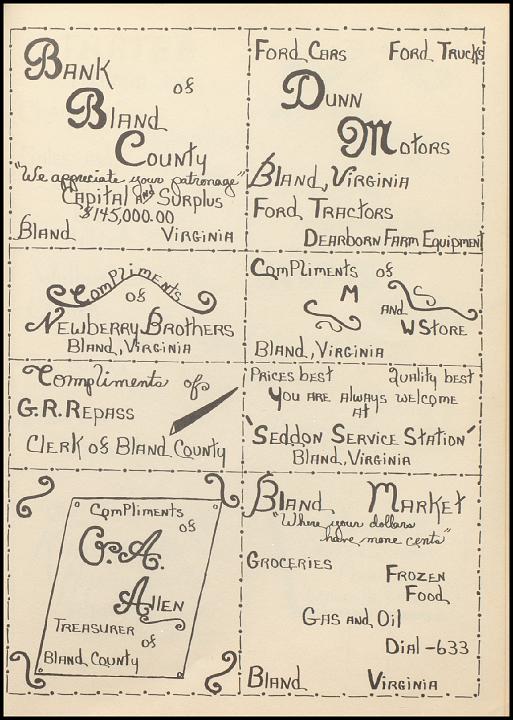 Bank
of
Bland
County
"We appreciate your patronage"
Capital and Surplus
$145,000.00
Bland Virginia
Ford Cars Ford Trucks
Dunn
Motors
Bland, Virginia
Ford Tractors
Dearborn Farm Equipment
Compliments
of
Newberry Brothers
Bland, Virginia
Compliments of
M and S
W Store
Bland, Virginia
Compliments of
G.R. Repass
Clerk of Bland County
Prices best Quality best
You are always welcome
at
'Seddon Service Station'
Bland, Virginia
Compliments
of
O.A.
Allen
Treasurer
of
Bland County
Bland Market
"Where your dollars
have more cents"
Groceries
Frozen
Food
Gas and Oil
Dial-633
Bland Virginia